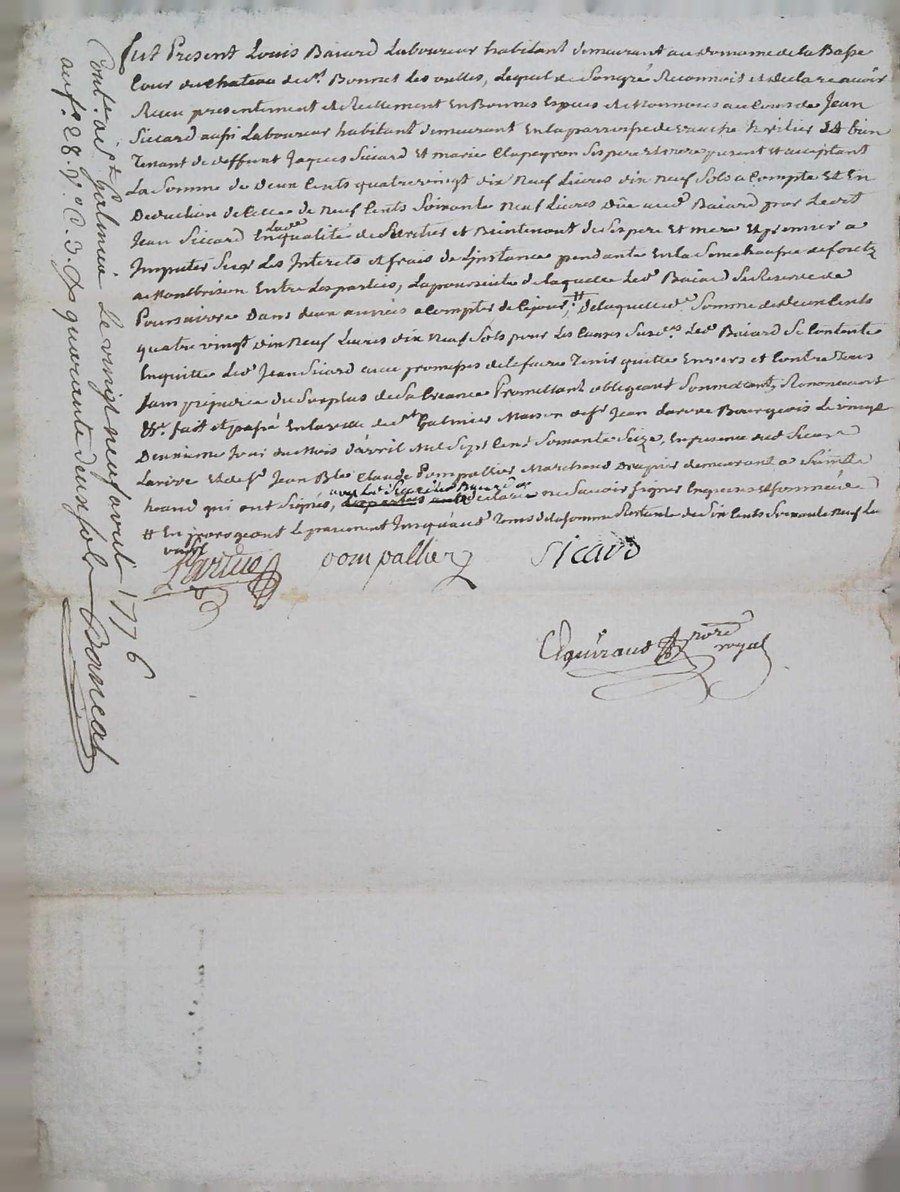 fut Present Louis Baiard Laboureur habitant demeurant au domaine de la Basse
Cour du chateau de st. Bonnet les oulles, Lequel de Son gré Reconnoit et declare avoir
Receu presentement et Reellement En Bonnes Espèces et Monnoies au Cours de Jean
Siccard aussi Laboureur habitant demeurant En la parroisse de heritier Et bien
Tenant de deffunt Jacques Siccard Et marie Clapeyron Ses pere et mere present et acceptant
La Somme de deux Cents quatre vingt dix Neuf Livres dix Neuf Sols a Compte Et En
Deduction de Celle de Neuf Cents Soixante Neuf Livres düe aud. Baiard par Ledit
Jean Siccard En lade qualité de heritier et Baintenant de Ses pere et mere Et premier a
Imputer Sur Les Interets et frais de L'instance pendante En la Senechaussée de forez
a Montbrison Entre Les parties, La poursuite de laquelle Led. Baiard Se Reserve de
Poursuivre Dans deux années a Compter de Ce jour, # De laquelle de. Somme de deux Cents
quatre vingt dix Neuf Livres dix Neuf Sols pour Les Causes Susdes. Led. Baiard Se Contente
Enquitte Led. Jean Sicard avec promesse de le faire Tenir quitte Envers et Contre Tous
Sans prejudice du Surplus de Sa Creance Promettant obligeant Soumettant, Renonceant
&c. fait et passé En la ville de st Galmier Maison de sr. Jean Larive Bourgeois Le vingt
Deuxieme Jour du Mois d'avril Mil Sept Cent Soixante Seize, En presence dud. Sieur
Larive Et de sr. Jean Bte. Claude Pompallier Marchand Drapier demeurant a
qui ont Signés, avec Led. Siccard Led. Baiard a declaré ne Savoir Signer Enquis Et Sommé
# En prorogeant le payement Jusqu'aud. Tems de la Somme Restante de Six Cents Soixante Neuf Liv.
Larive
pompallier
Sicard
Eguiraud Nore royal
Contlé. a st. Galmier Le vingt neuf avril 1776
au fo. 28. vo. C. 3. Rx quarente deux sols Boncal